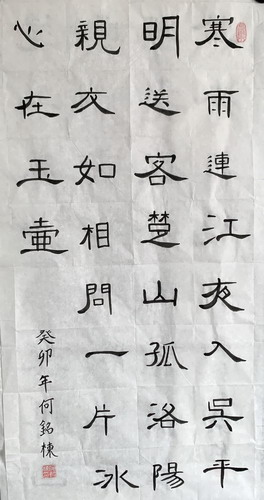 寒雨連江夜入吳平
明送客楚山孤洛陽
親友如相問一片冰
心在玉壺
癸卯年何銘棟